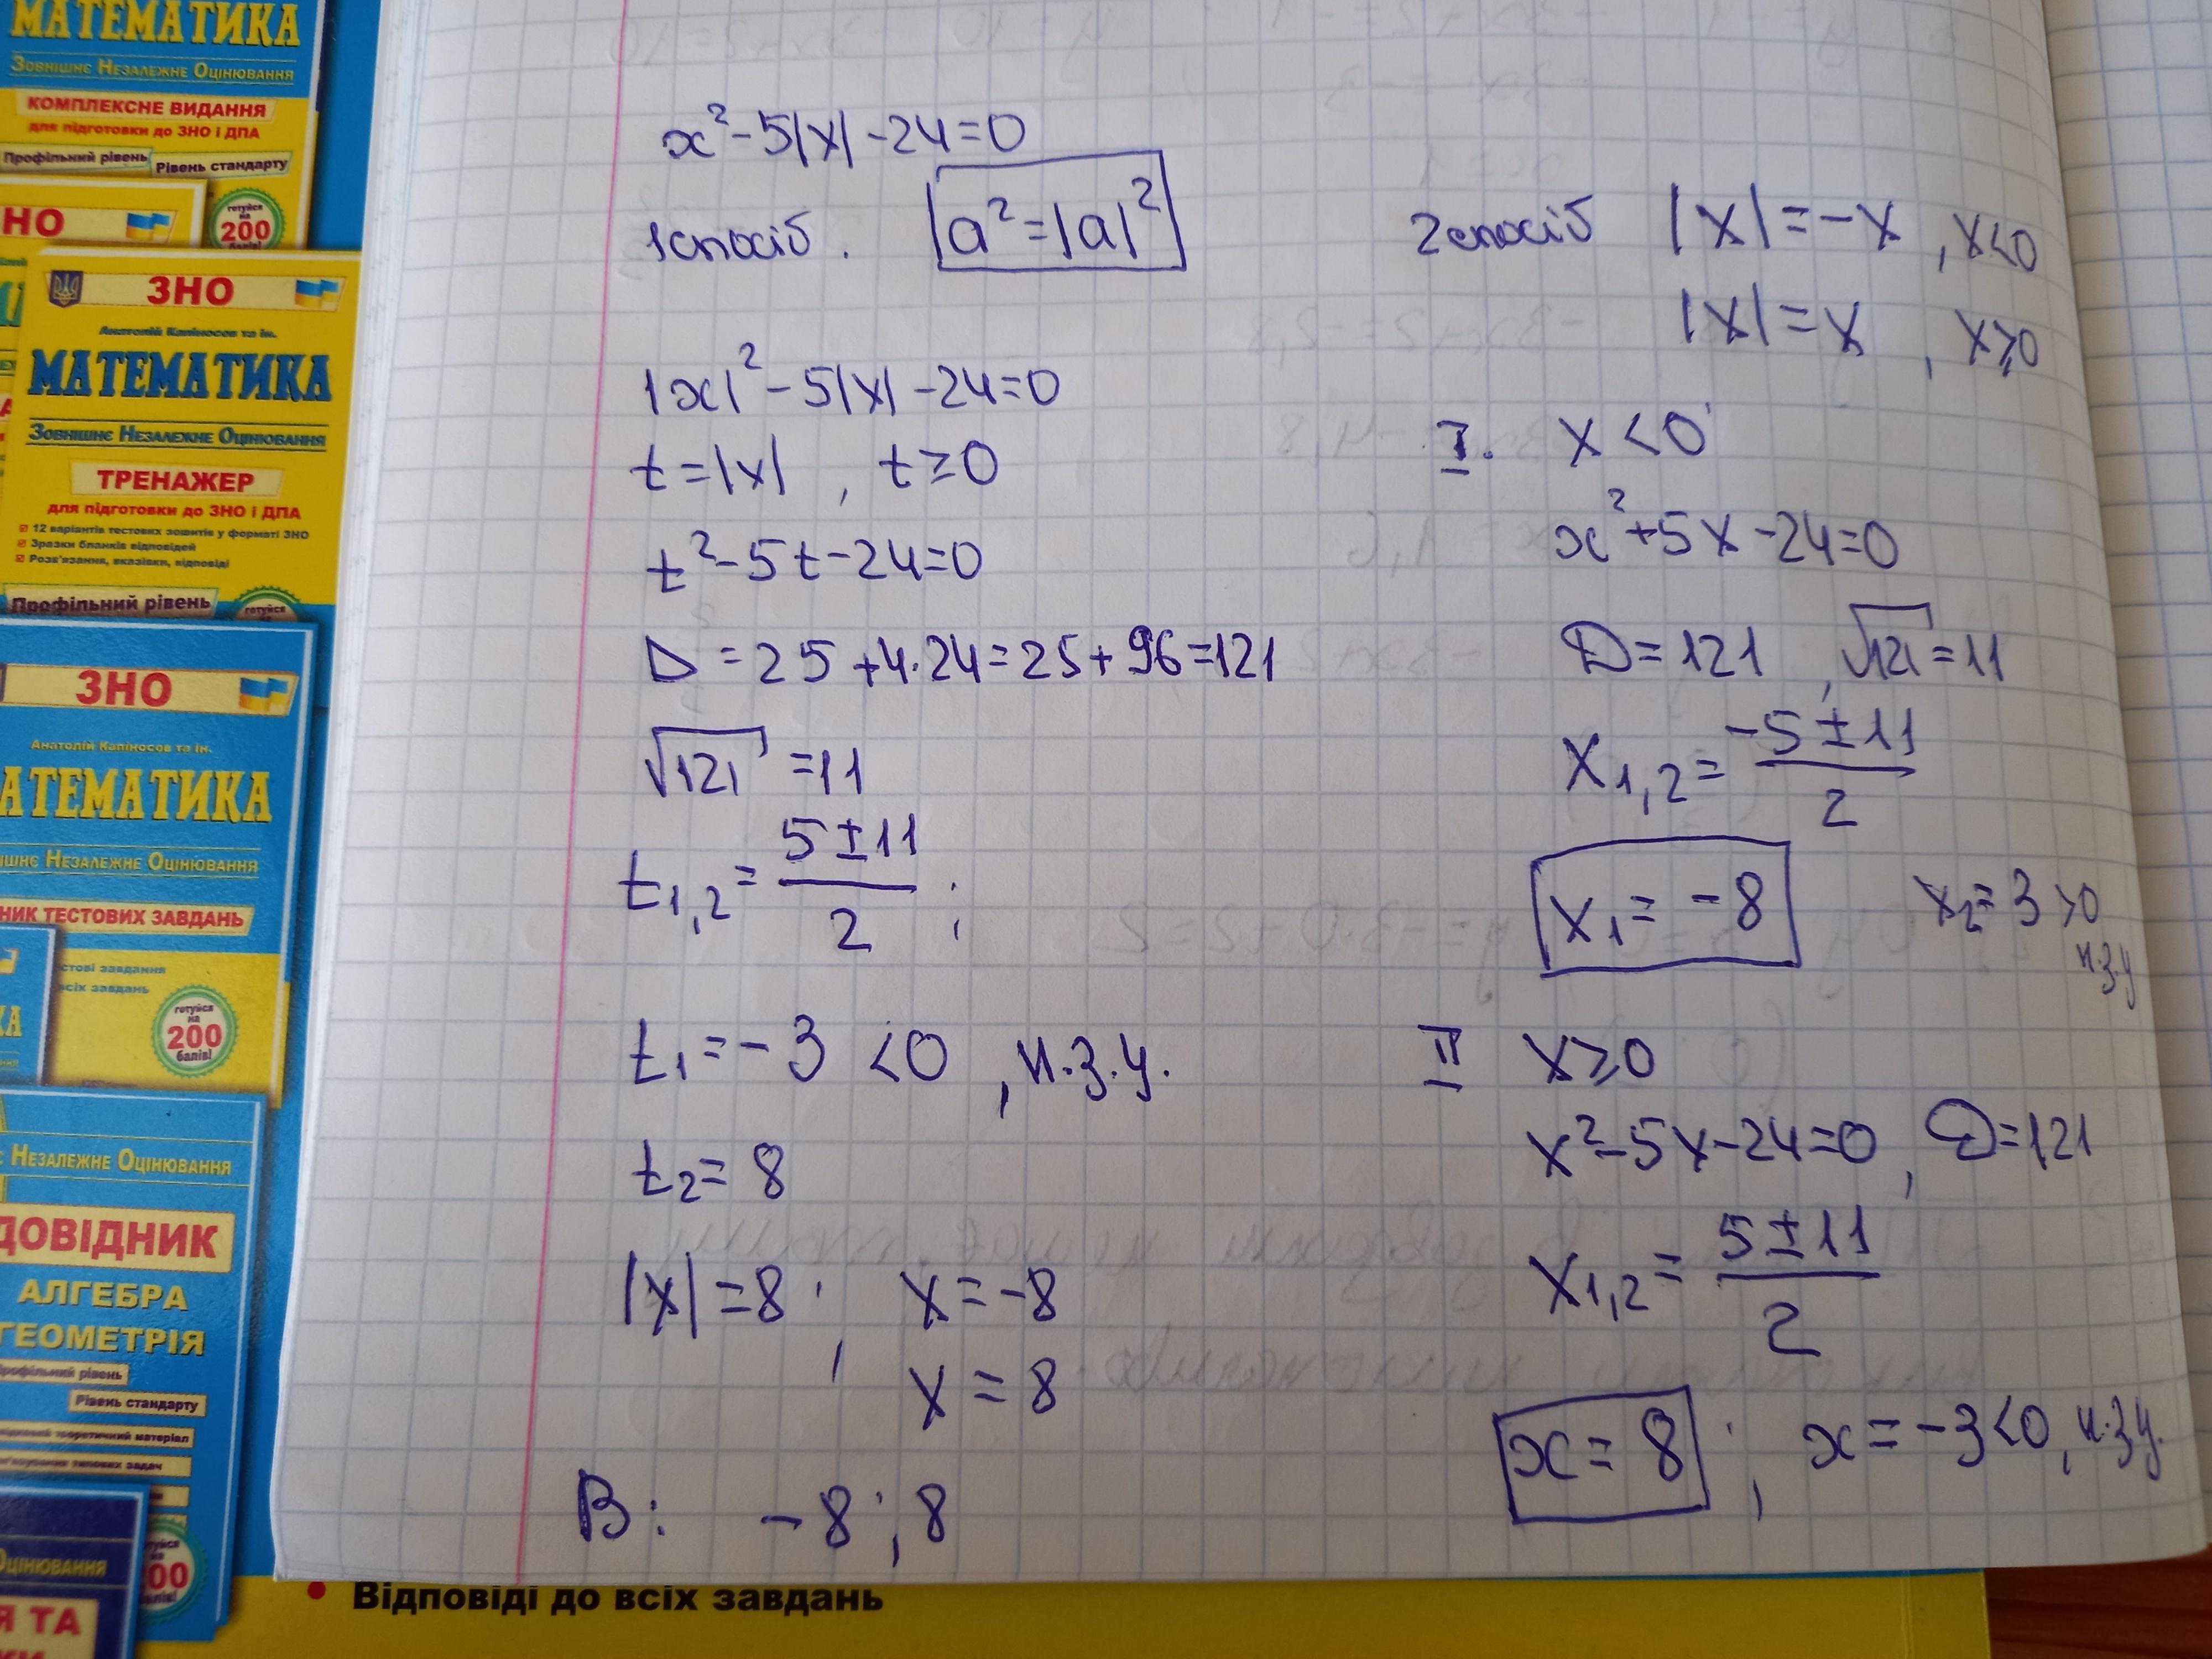 МАТЕМАТИКА
Зовнішнє Незалежне Оцінювання
КОМПЛЕКСНЕ ВИДАННЯ
для підготовки до ЗНО і ДПА
Профільний рівень
Рівень стандарту
НО
готуйся
на
200
балів!
ЗНО
Анатолій Капіносов та ін.
МАТЕМАТИКА
Зовнішнє Незалежне Оцінювання
ТРЕНАЖЕР
для підготовки до ЗНО і ДПА
12 варіантів тестових зошитів у форматі ЗНО
Зразки бланків відповідей
Розв'язання, вказівки, відповіді
Профільний рівень
готуйся
ЗНО
Анатолій Капіносов та ін.
АТЕМАТИКА
ІШНЄ Незалежне Оцінювання
НИК ТЕСТОВИХ ЗАВДАНЬ
стові завдання
всіх завдань
готуйся
на
200
балів!
Незалежне Оцінювання
ДОВІДНИК
АЛГЕБРА
ГЕОМЕТРІЯ
Профільний рівень
Рівень стандарту
Оцінювання
Я ТА
• Відповіді до всіх завдань
x² - 5|x| - 24 = 0
1 спосіб. a² = |a|²
|x|² - 5|x| - 24 = 0
t = |x| , t ≥ 0
t² - 5t - 24 = 0
D = 25 + 4·24 = 25 + 96 = 121
√121 = 11
t₁,₂ = (5 ± 11)/2 ;
t₁ = -3 < 0 , н.з.у.
t₂ = 8
|x| = 8 ; x = -8
x = 8
В: -8 ; 8
2 спосіб |x| = -x , x < 0
|x| = x , x ≥ 0
I. x < 0
x² + 5x - 24 = 0
D = 121 , √121 = 11
x₁,₂ = (-5 ± 11)/2
x₁ = -8 x₂ = 3 > 0
н.з.у
II x ≥ 0
x² - 5x - 24 = 0 , D = 121
x₁,₂ = (5 ± 11)/2
x = 8 ; x = -3 < 0, н.з.у.